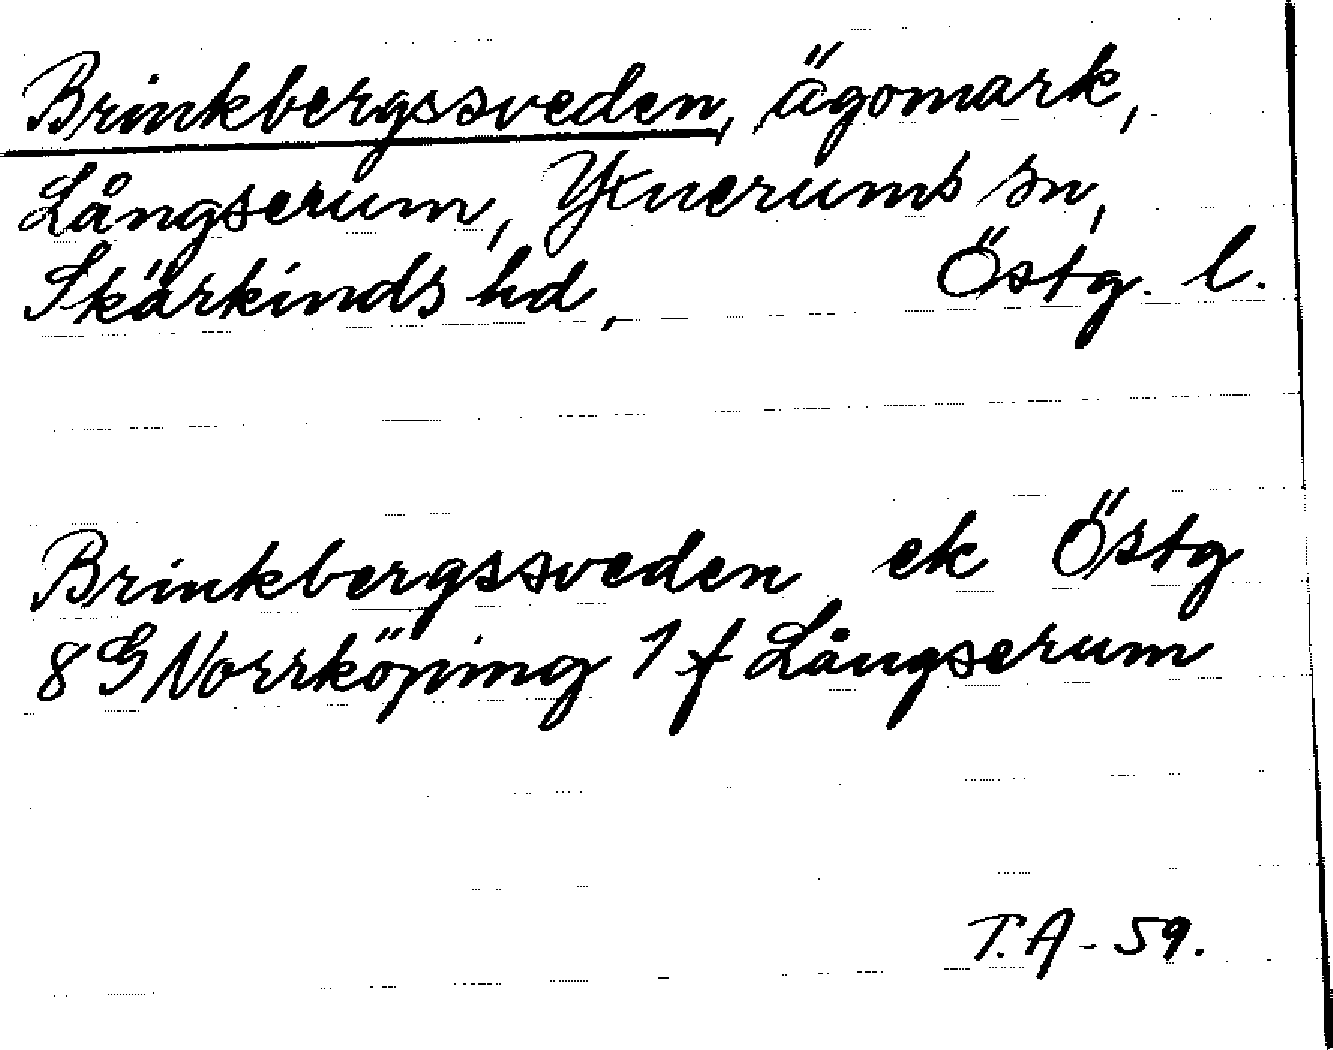 Brinkbergssveden, ägomark,
Långserum, Yxnerums sn,
Skärkinds hd, Östg. l.
Brinkbergssveden ek Östg
8 G Norrköping 1 f Långserum
T.A - 59.